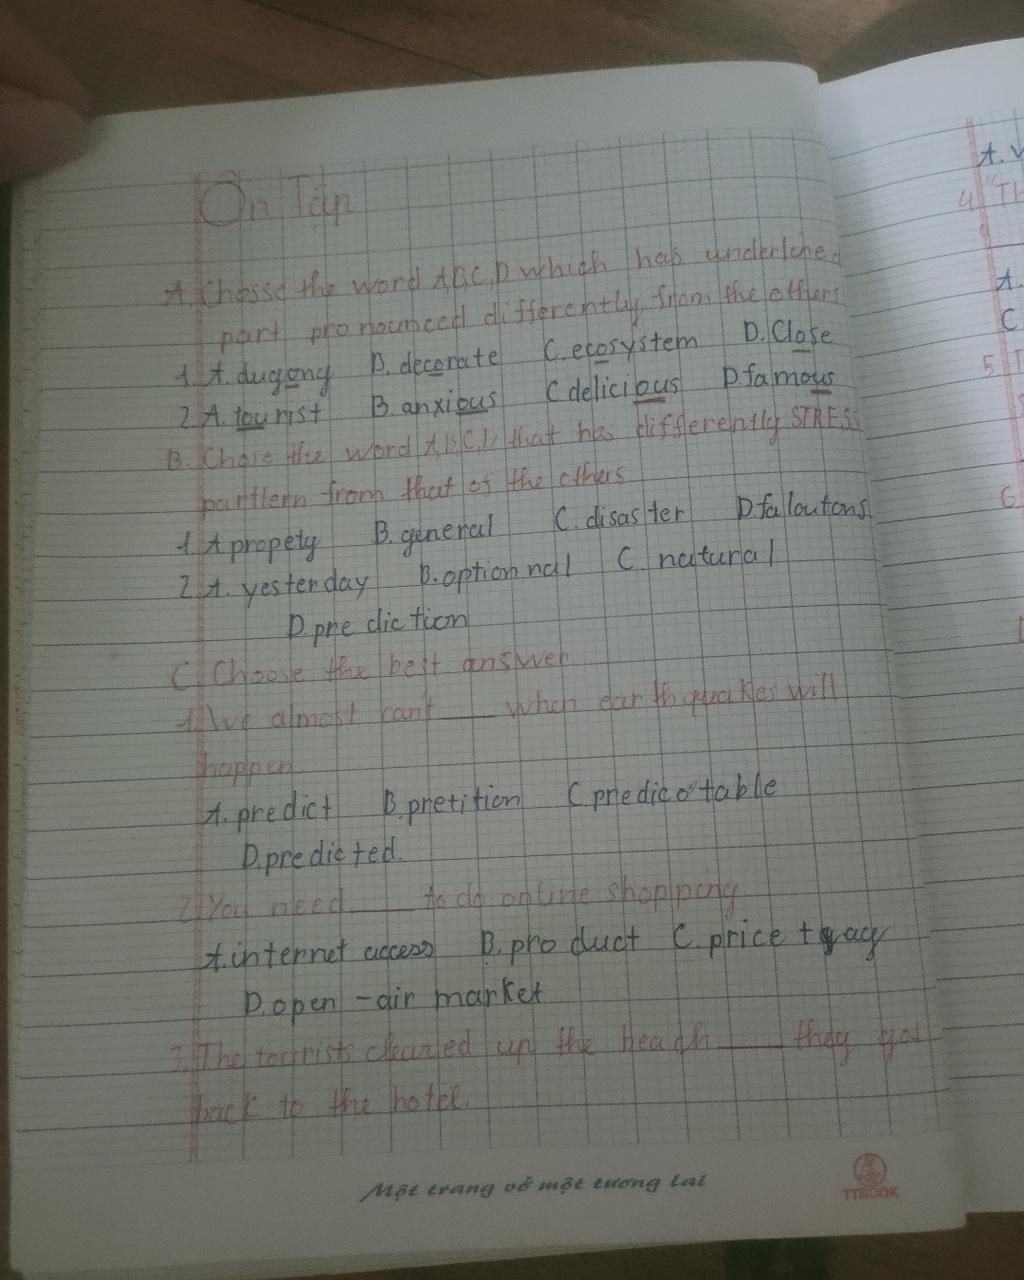 Ôn Tập
A. Chosse the word A,B,C,D which has underlined
part pronounced differently from the others
1. A. dugong B. decorate C. ecosystem D. Close
2. A. tourist B. anxious C. delicious D. famous
B. Chose the word A,B,C,D that has differently STRESS
parttern from that of the others
1. A propety B. general C. disaster D. falloutons
2. A. yesterday B. optionnal C. natural
D. prediction
C. Choose the best answer
1. We almost can't ___ when earthquakes will
happen
A. predict B. pretition C. predicotable
D. predicted.
2. You need ___ to do online shopping
A. internet access B. product C. price tag
D. open-air market
3. The tourists cleaned up the beach ___ they got
back to the hotel.
Một trang vở một tương lai
TTBOOK
A.
4 "Th
A.
C
5
6